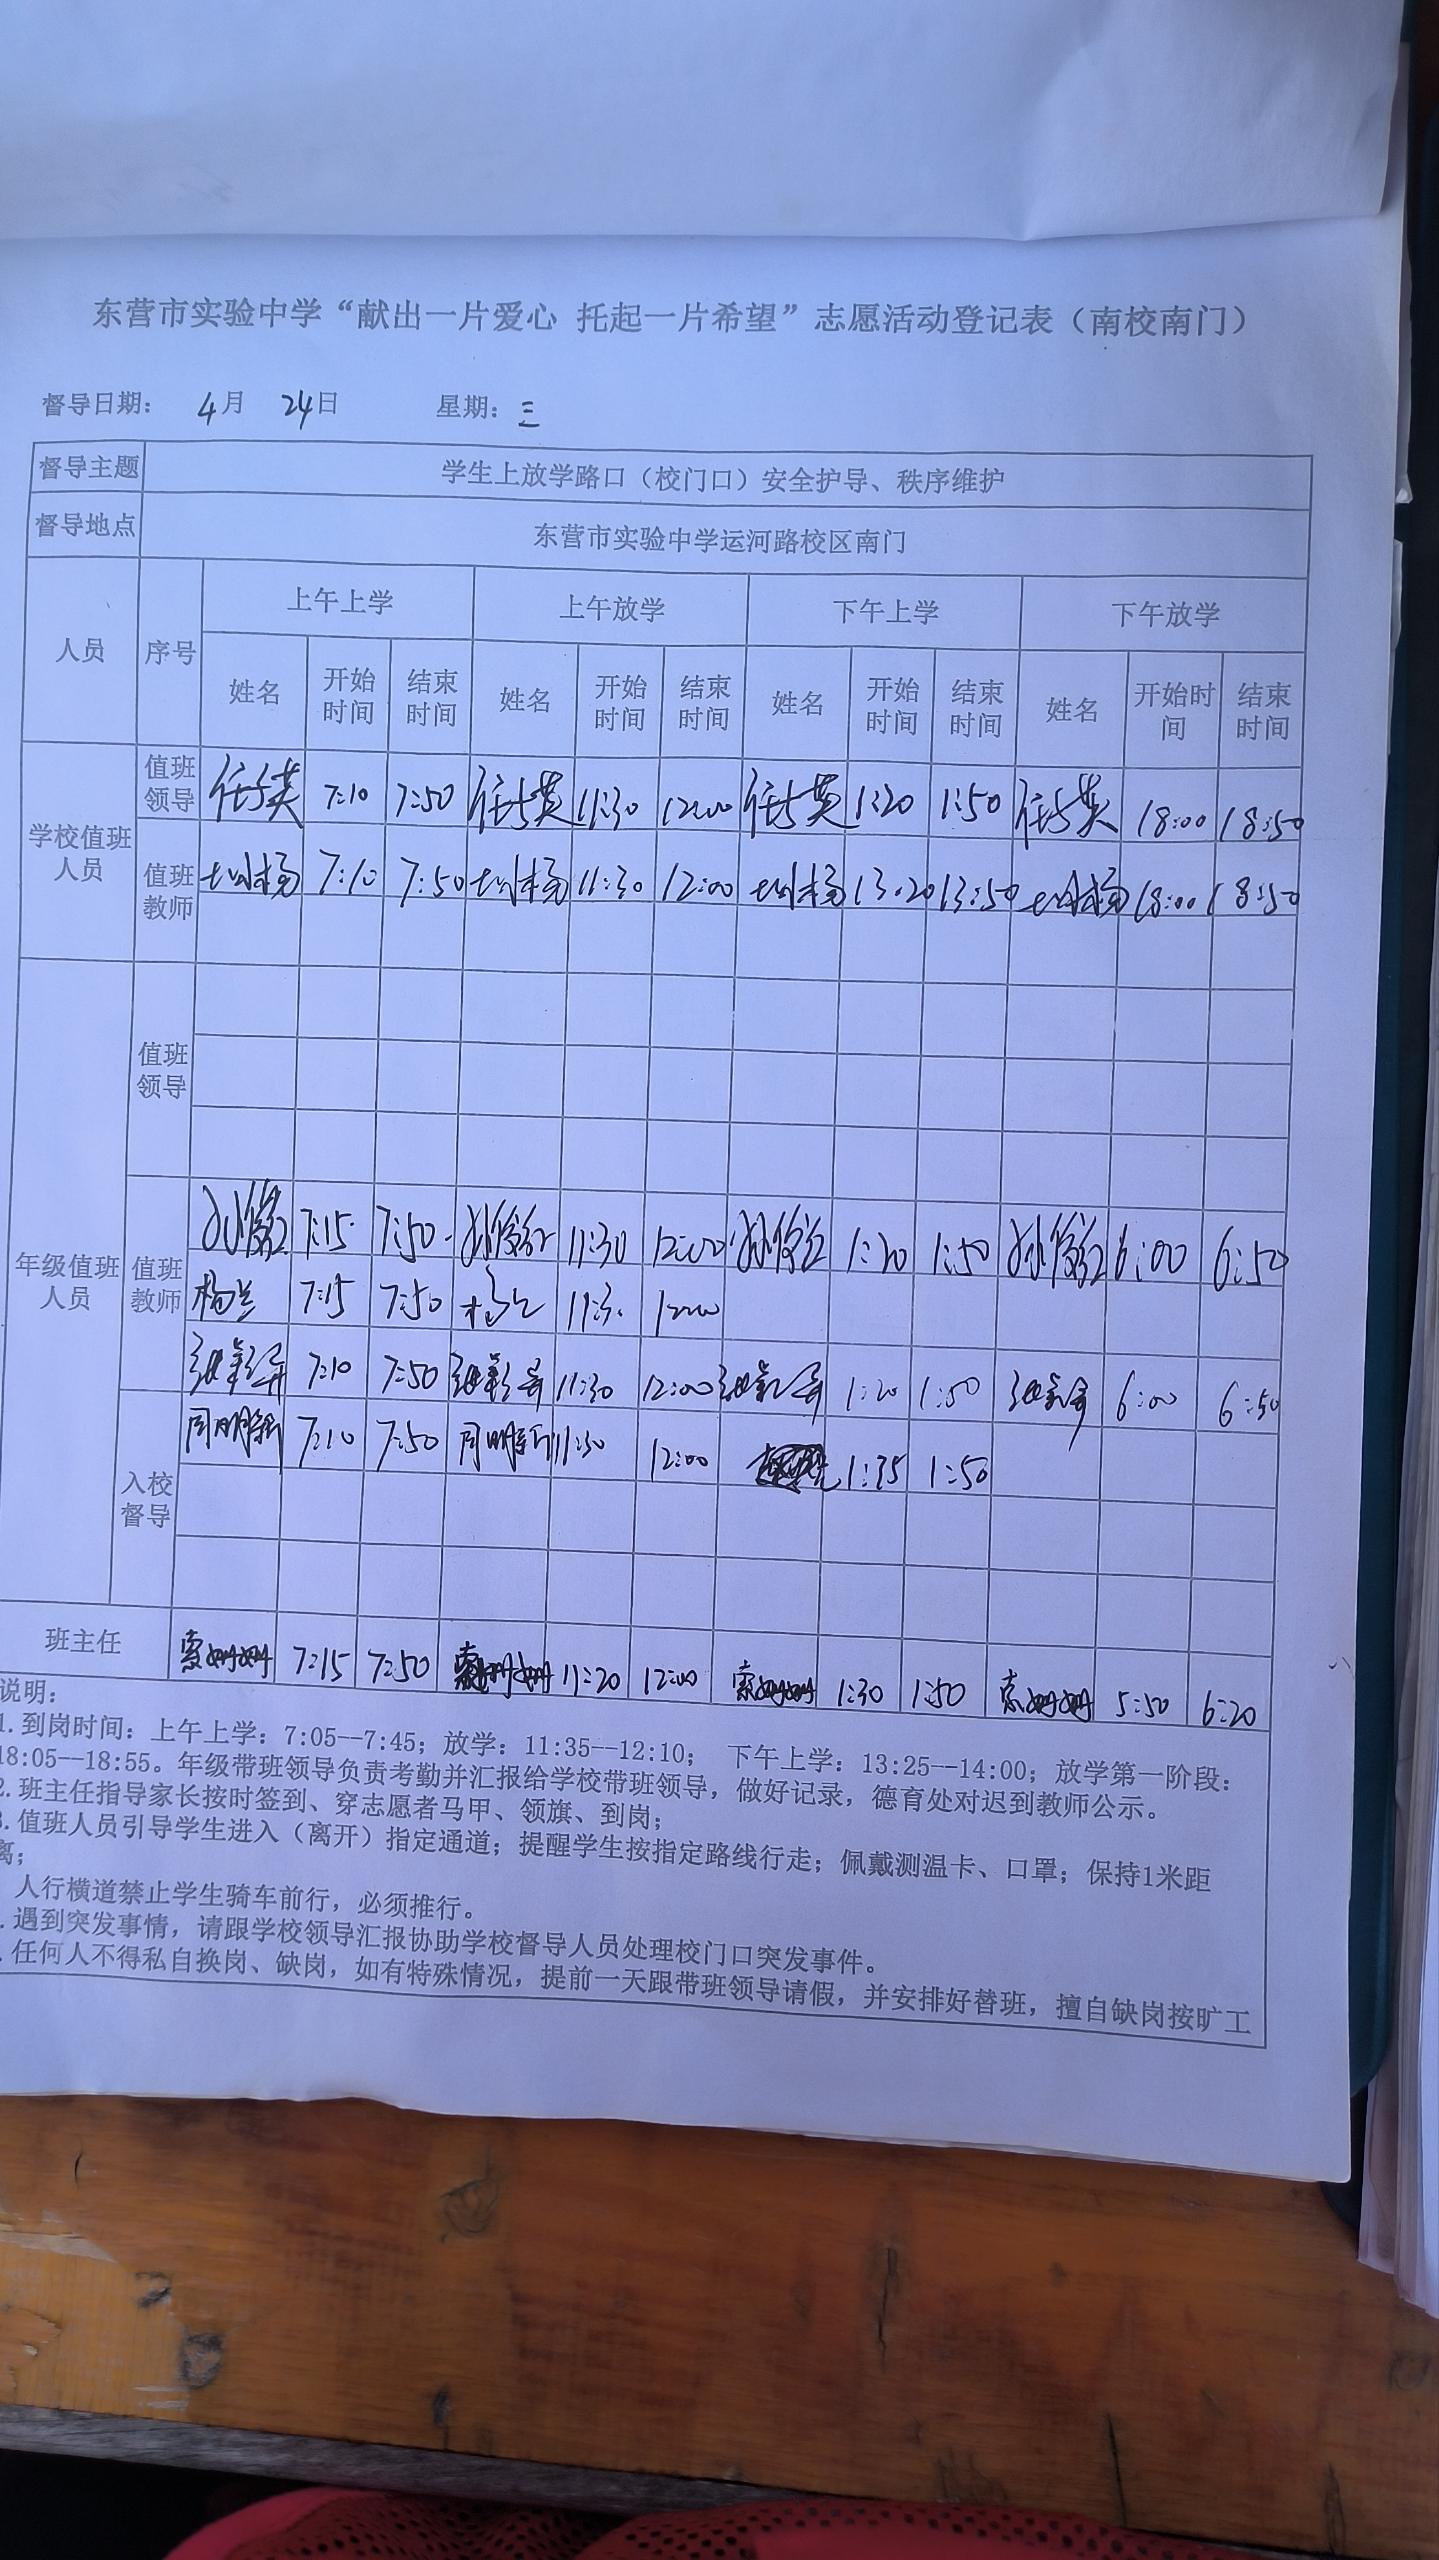 东营市实验中学“献出一片爱心 托起一片希望”志愿活动登记表（南校南门）
督导日期： 4月 24日 星期：三
督导主题 学生上放学路口（校门口）安全护导、秩序维护
督导地点 东营市实验中学运河路校区南门
人员 序号 上午上学 上午放学 下午上学 下午放学
姓名 开始时间 结束时间 姓名 开始时间 结束时间 姓名 开始时间 结束时间 姓名 开始时间 结束时间
学校值班人员 值班领导 7:10 7:50 11:30 12:00 1:20 1:50 18:00 18:50
值班教师 7:10 7:50 11:30 12:00 13:20 13:50 18:00 18:50
年级值班人员 值班领导
值班教师 7:15 7:50 11:30 12:00 1:20 1:50 6:00 6:50
杨兰 7:15 7:50 11:30 12:00
7:10 7:50 11:30 12:00 1:20 1:50 6:00 6:50
入校督导 周明新 7:10 7:50 周明新 11:30 12:00 1:35 1:50
班主任 索姗姗 7:15 7:50 索姗姗 11:20 12:00 索姗姗 1:30 1:50 索姗姗 5:50 6:20
说明：
1.到岗时间：上午上学：7:05--7:45；放学：11:35--12:10； 下午上学：13:25--14:00；放学第一阶段：
18:05--18:55。年级带班领导负责考勤并汇报给学校带班领导，做好记录，德育处对迟到教师公示。
2.班主任指导家长按时签到、穿志愿者马甲、领旗、到岗；
3.值班人员引导学生进入（离开）指定通道；提醒学生按指定路线行走；佩戴测温卡、口罩；保持1米距
离；
人行横道禁止学生骑车前行，必须推行。
.遇到突发事情，请跟学校领导汇报协助学校督导人员处理校门口突发事件。
.任何人不得私自换岗、缺岗，如有特殊情况，提前一天跟带班领导请假，并安排好替班，擅自缺岗按旷工